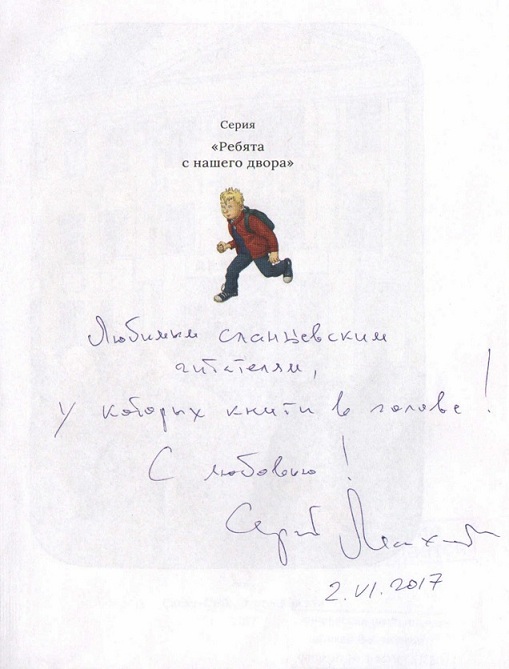 Серия
«Ребята
с нашего двора»
Любимым сланцевским
читателям,
у которых книги в голове!
С любовью!
Сергей Махотин
2.VI.2017